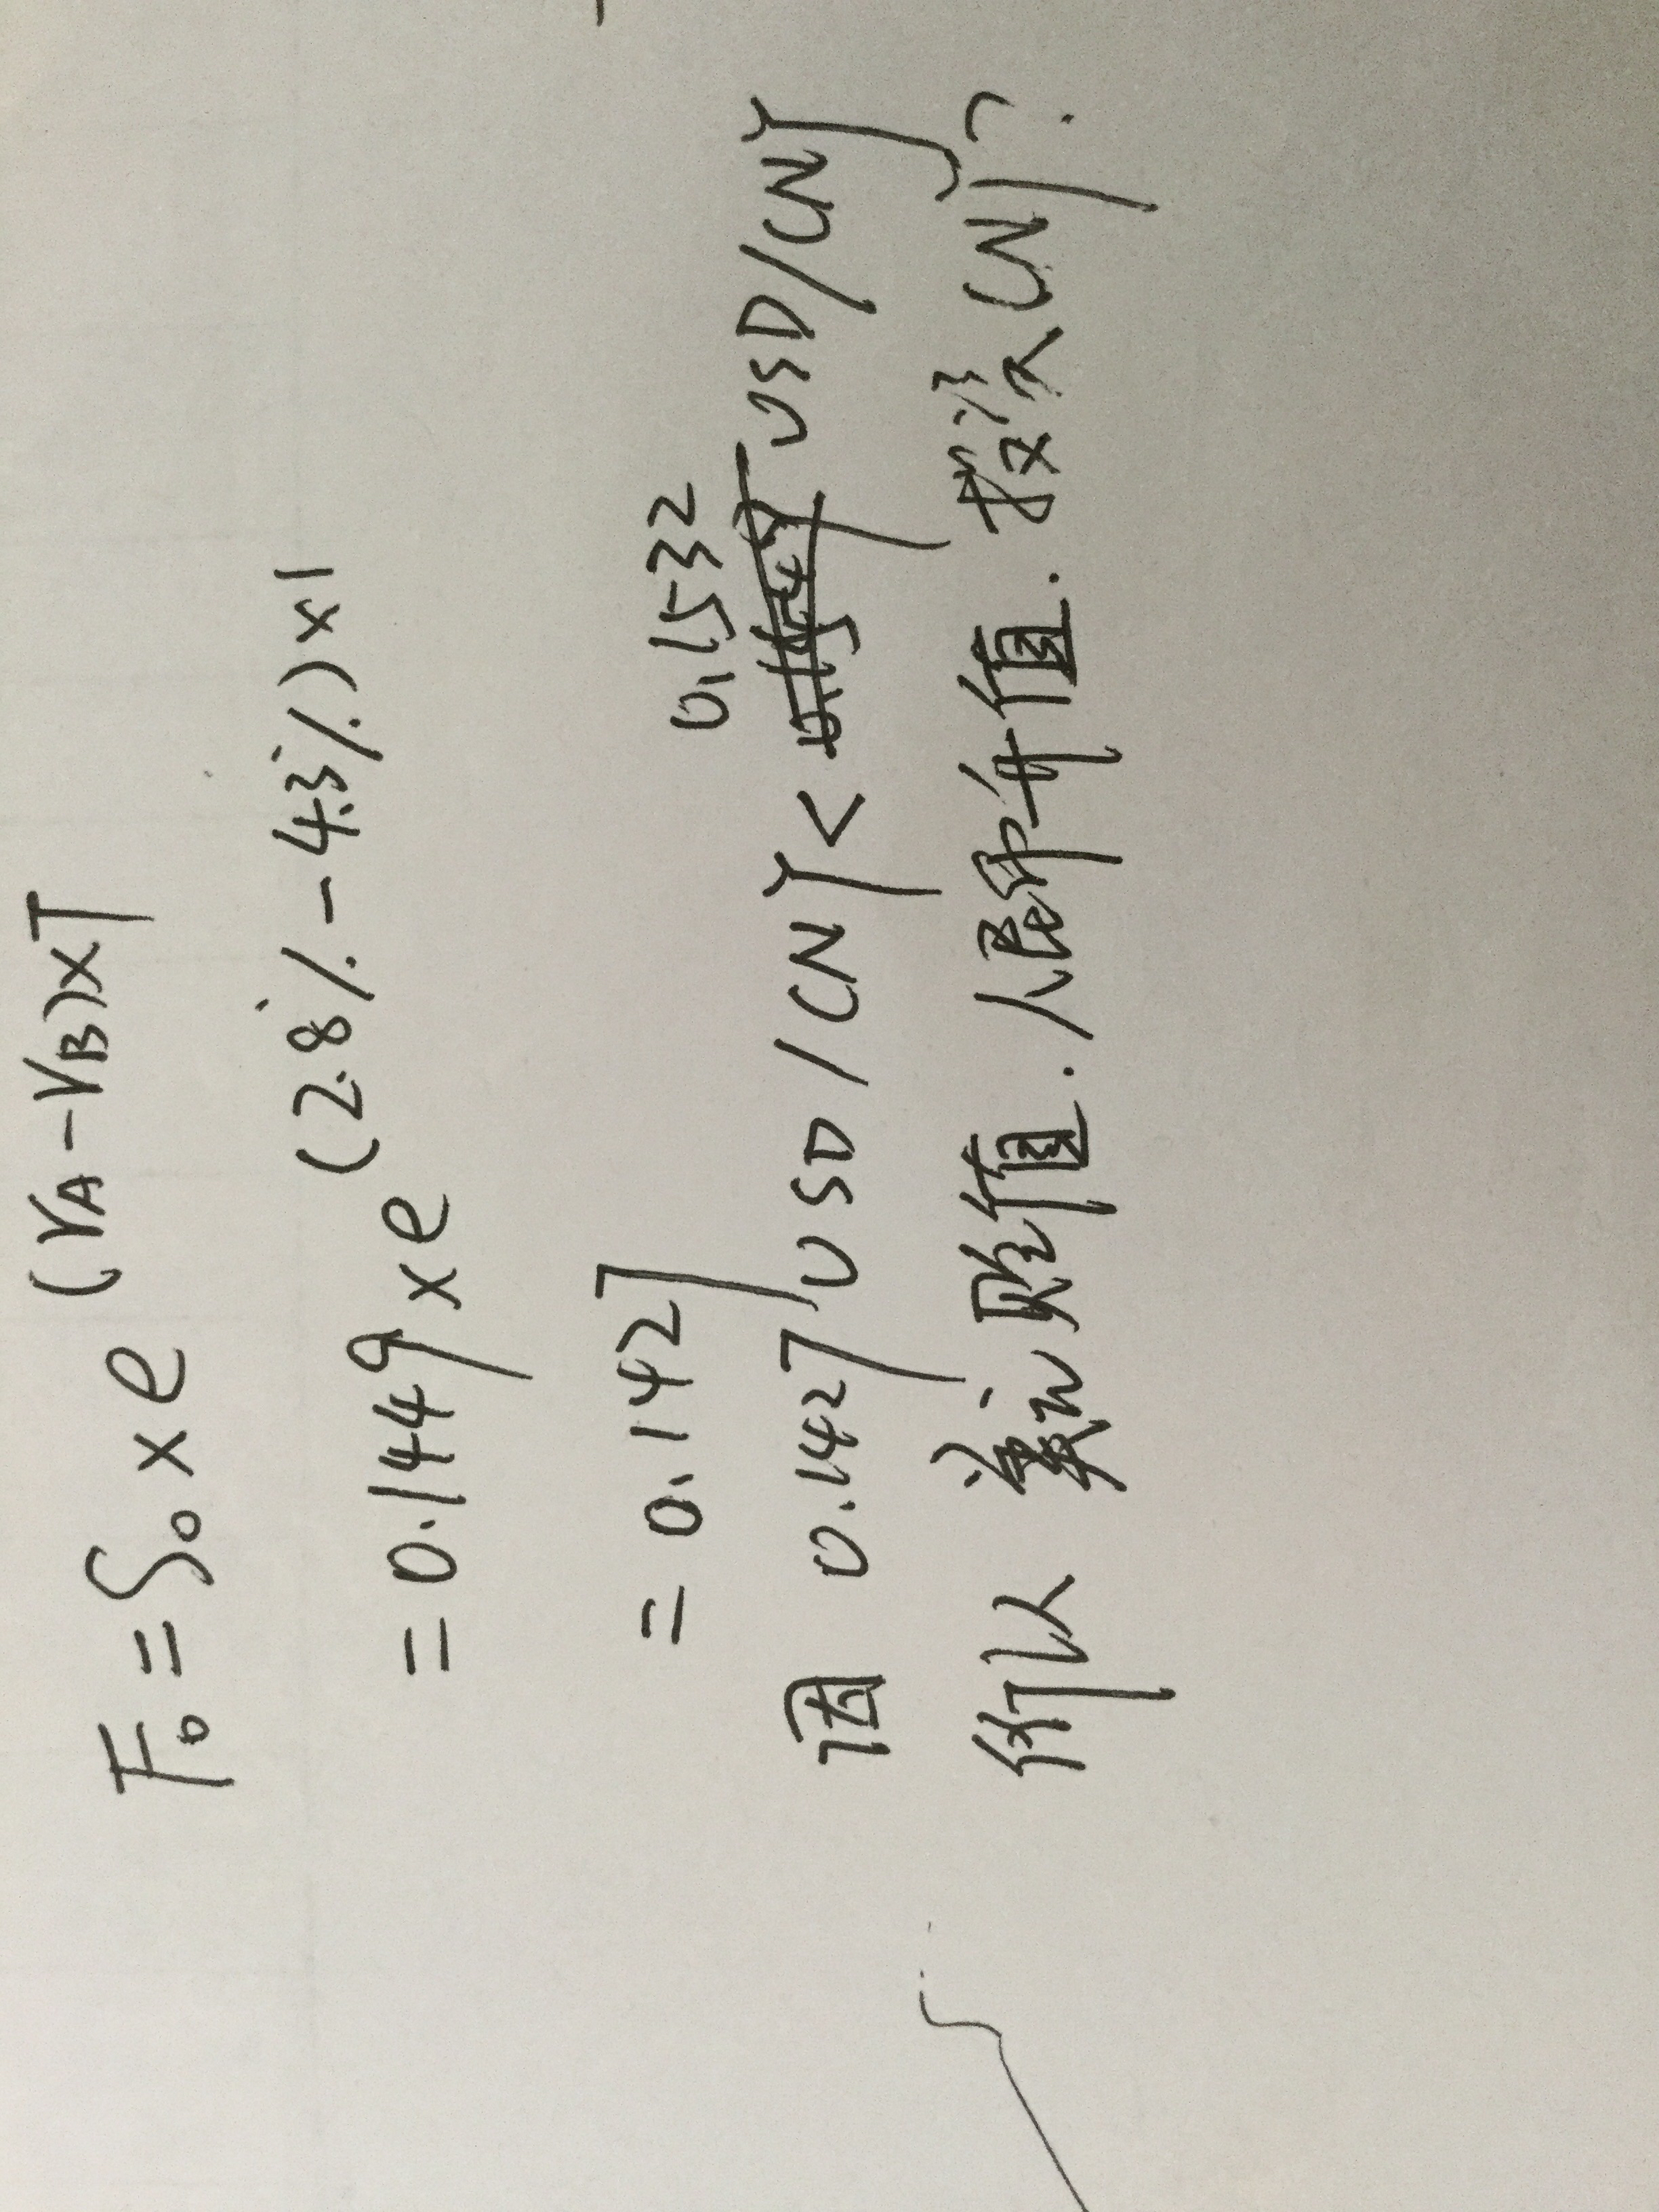 F₀ = S₀ × e^(r_A − r_B)×T
= 0.1449 × e^(2.8% − 4.3%)×1
= 0.1427
因 0.1427 USD/CNY < 0.1532 USD/CNY
所以 美元贬值. 人民币升值. 投资CNY?